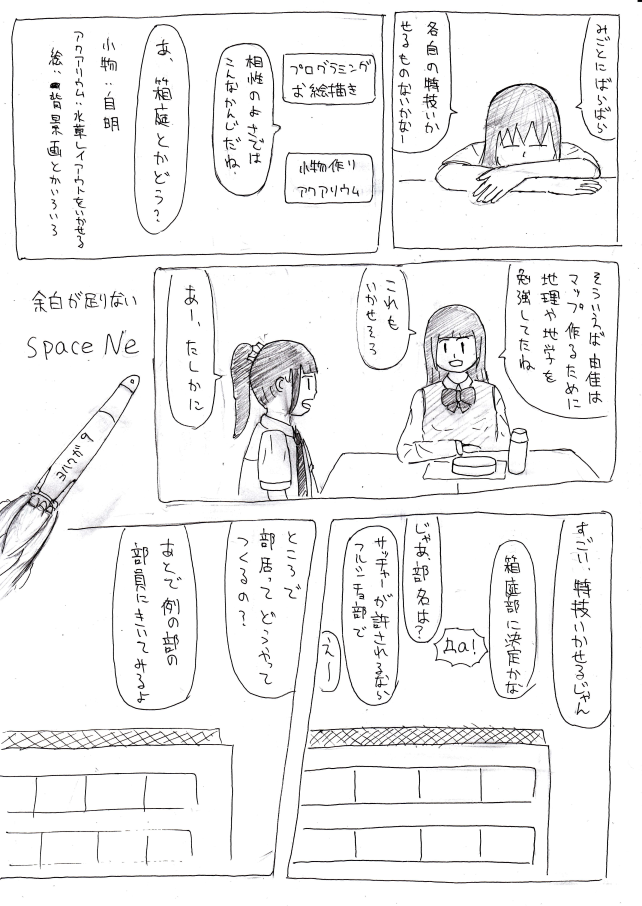 みごとにばらばら
各自の特技いか
せるものないかなー
プログラミング
お絵描き
小物作り
アクアリウム
相性のよさでは
こんなかんじだね.
あ、箱庭とかどう？
小物:自明
アクアリウム:水草レイアウトをいかせる
絵:背景画とかいろいろ
そういえば由佳は
マップ作るために
地理や地学を
勉強してたね
これも
いかせそう
あー、たしかに
余白が足りない
Space Ne
すごい、特技いかせるじゃん
箱庭部に決定かな
Да!
じゃあ、部名は？
サッチャーが許されるなら
フルシチョ部で
え〜
ところで
部活ってどうやって
つくるの？
あとで例の部の
部員にきいてみるよ